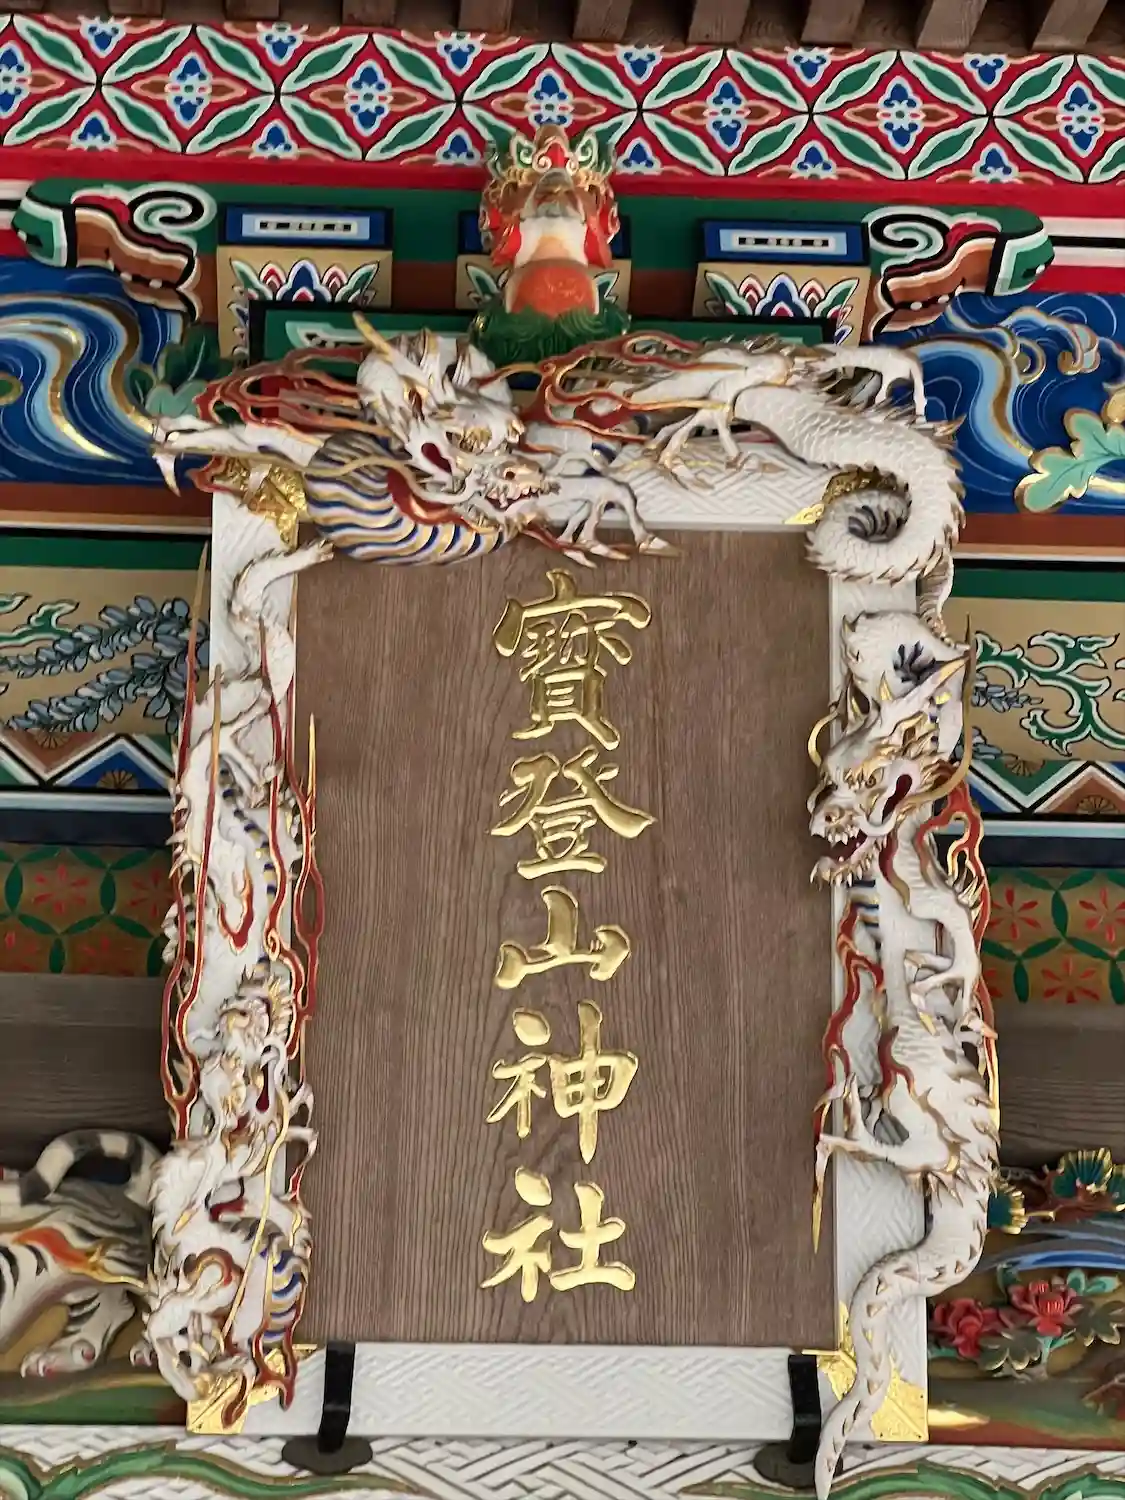 寶登山神社